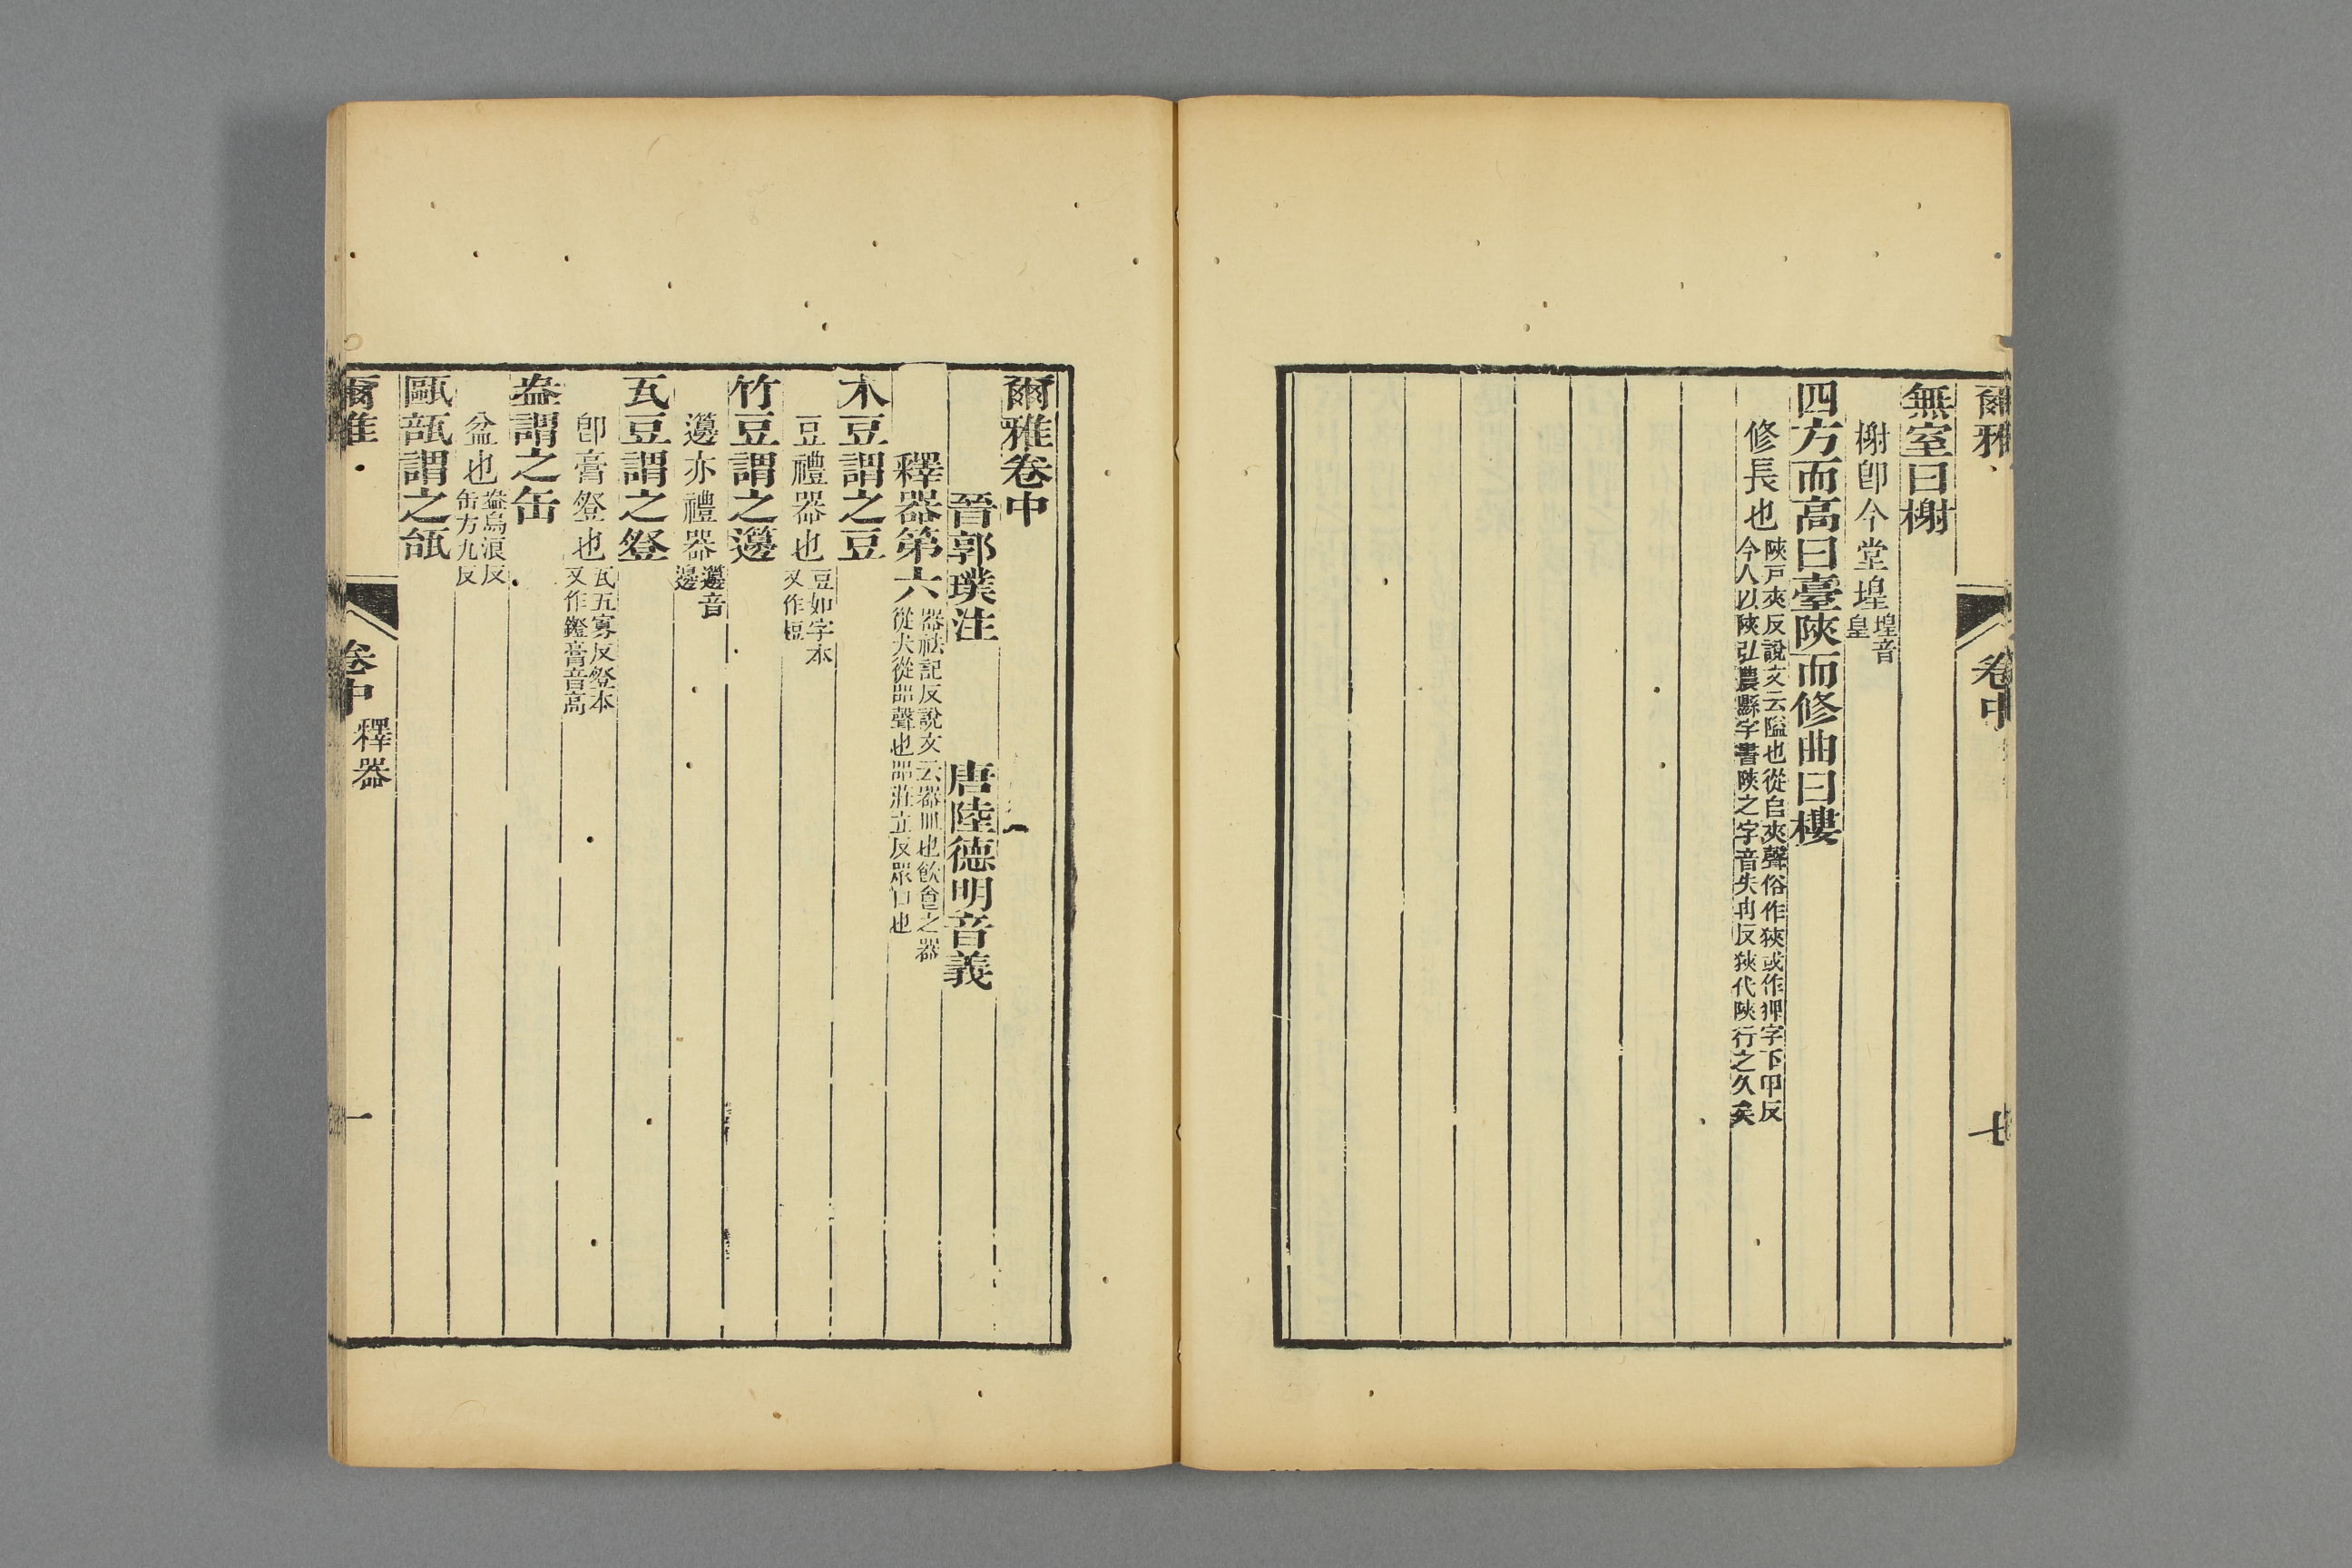 爾雅
卷中
七
無室曰榭
榭卽今堂堭堭音
皇
四方而高曰臺陜而修曲曰樓
修長也陜戸夾反說文云隘也從𨸏夾聲俗作狹或作狎字下甲反
今人以陜弘農縣字書陜之字音失冉反狹代陜行之久矣
爾雅卷中
晉郭璞注 唐陸德明音義
釋器第六器祛記反說文云器皿也飲食之器
從犬從㗊聲也㗊莊立反眾口也
木豆謂之豆
豆禮器也豆如字本
又作梪
竹豆謂之籩
籩亦禮器籩音
邊
瓦豆謂之登
卽膏登也瓦五寡反登本
又作鐙膏音高
盎謂之缶
盆也盎烏浪反
缶方九反
甌瓿謂之瓵
爾雅
卷中
釋器
一